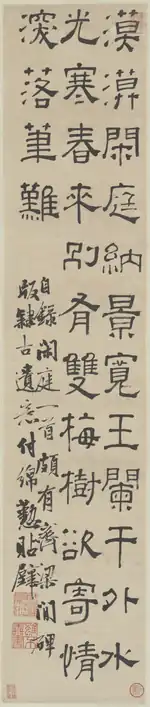 漠漠閑庭納景寬玉闌干外水
光寒春來別有雙梅樹欲寄情
深落筆難
自錄閑庭一首頗有齊梁間碑
版隸古遺意付綿懃貼壁